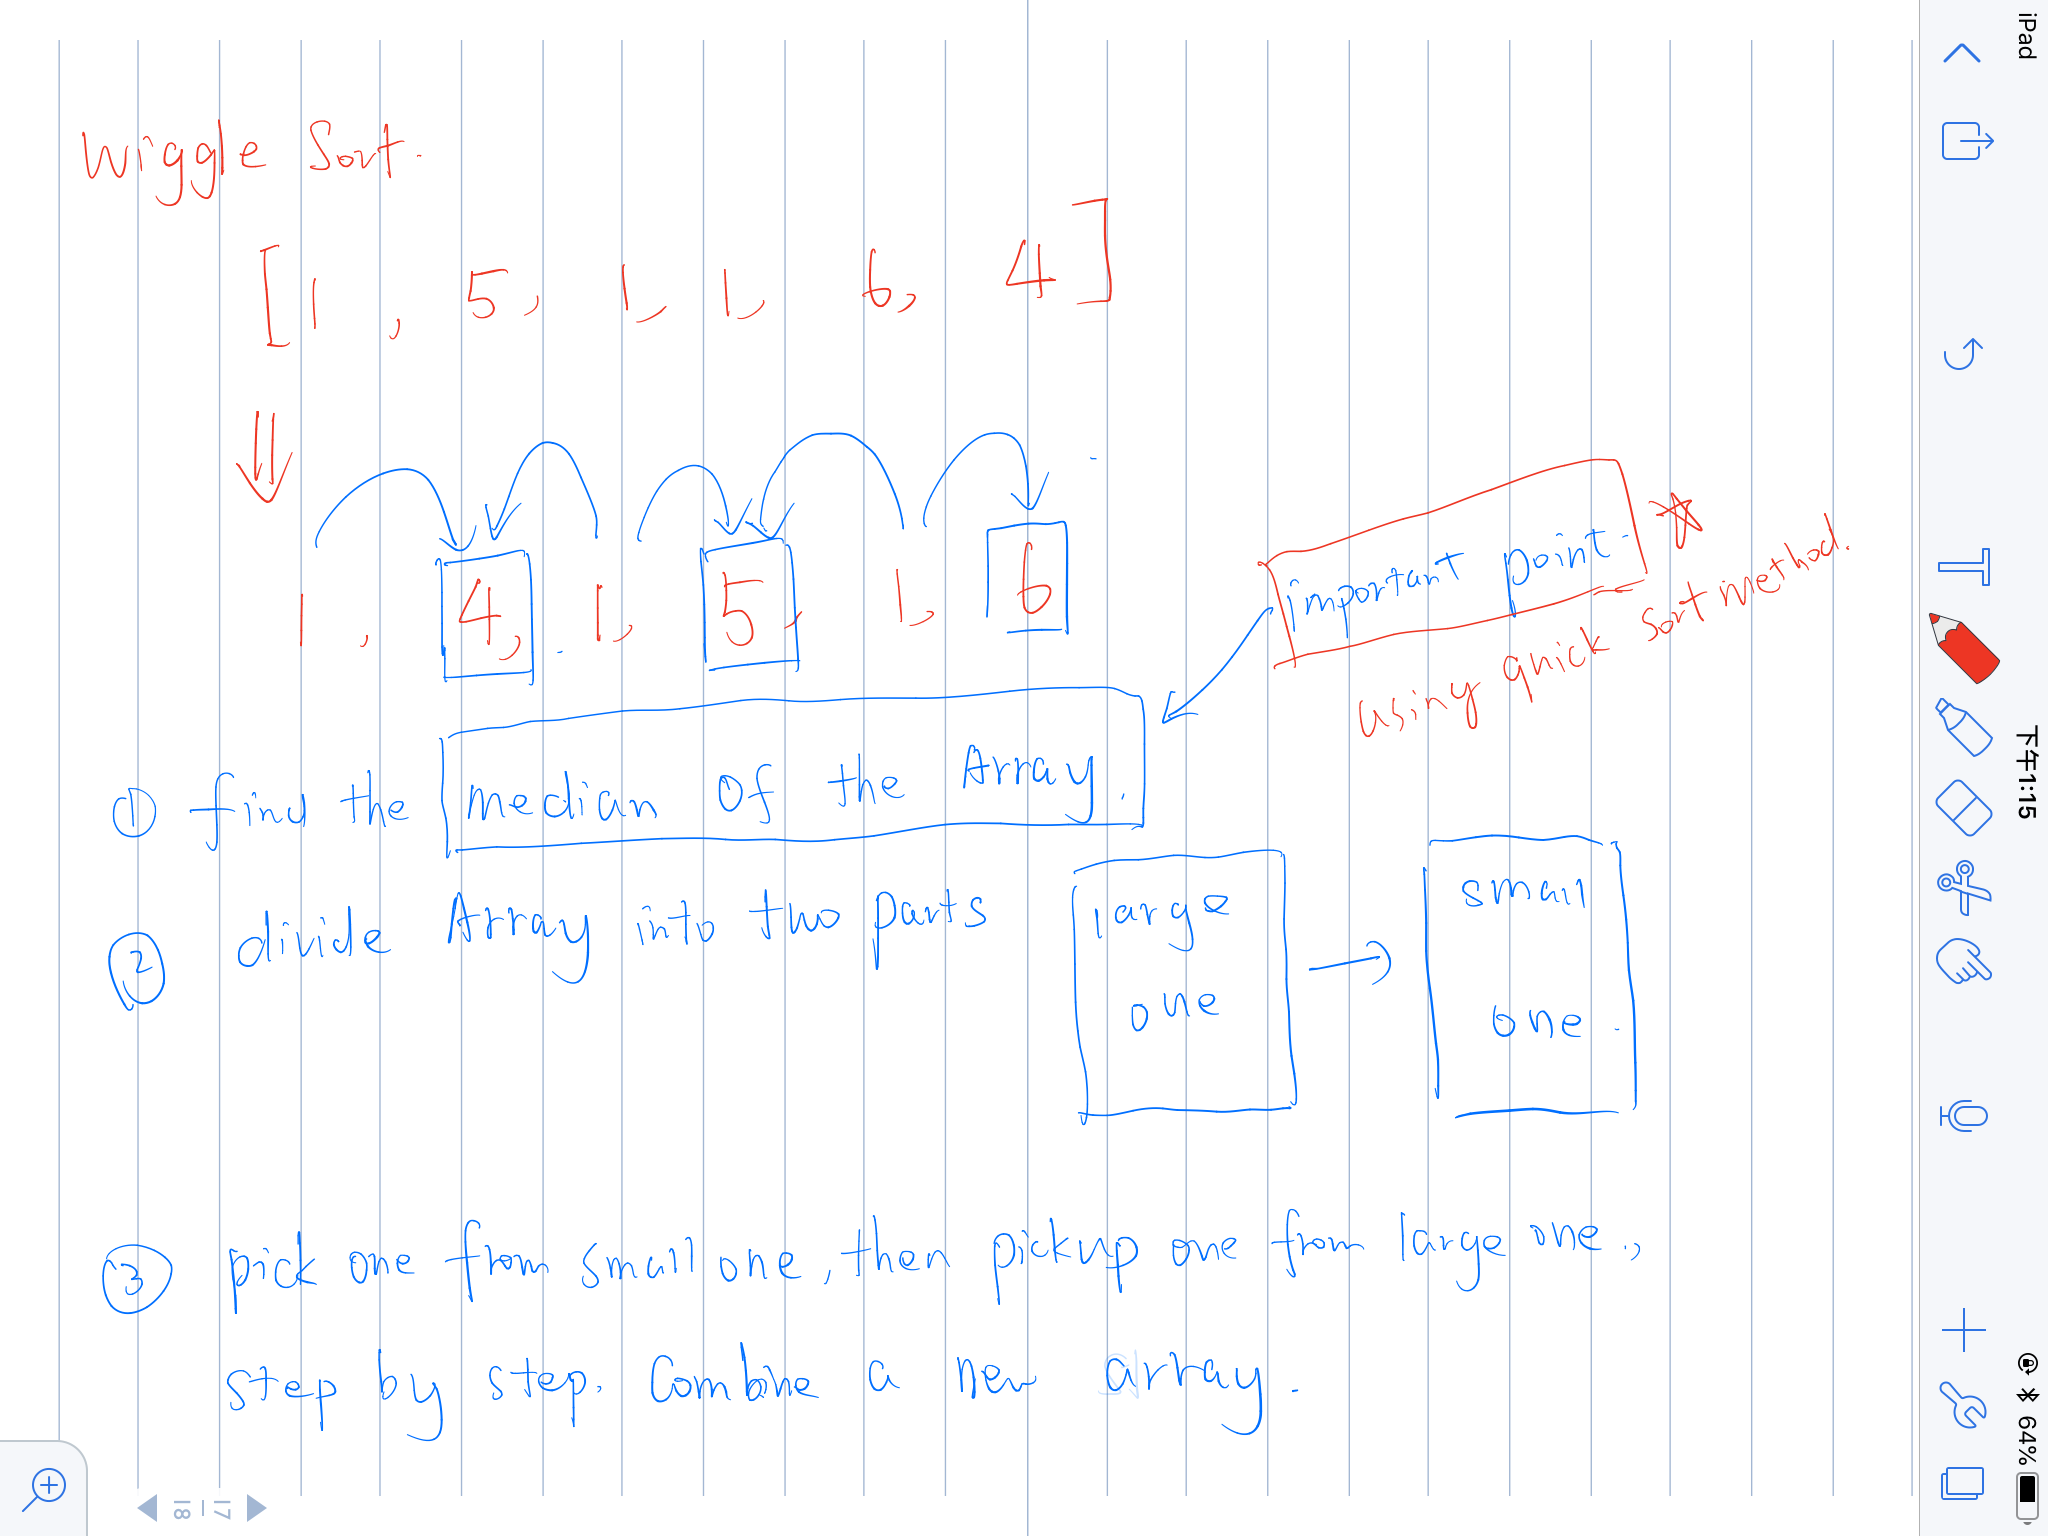 Wiggle Sort.
[1, 5, 1, 1, 6, 4]
1, 4, 1, 5, 1, 6
important point.
using quick sort method.
① find the median of the Array.
② divide Array into two parts
large one
small one.
③ pick one from small one, then pickup one from large one.,
step by step. Combine a new array.
iPad
下午1:15
64%
17
18